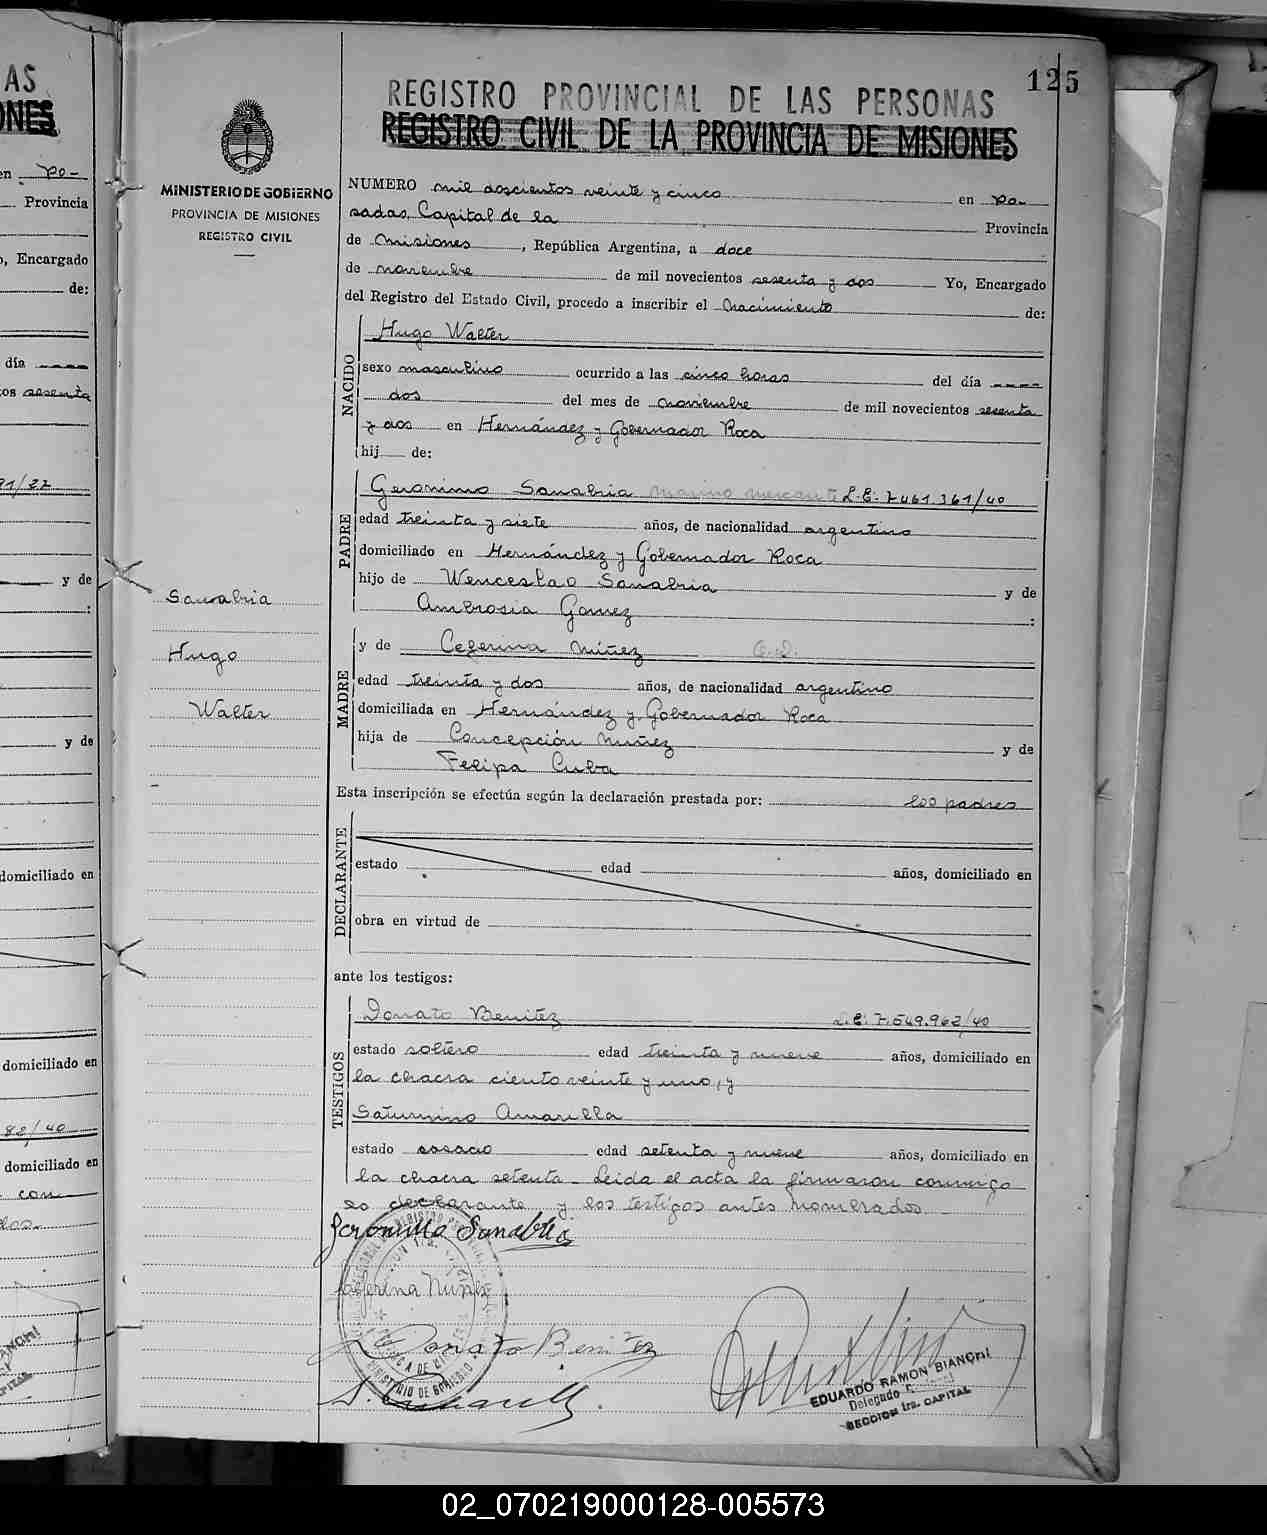 125
REGISTRO PROVINCIAL DE LAS PERSONAS
REGISTRO CIVIL DE LA PROVINCIA DE MISIONES
MINISTERIO DE GOBIERNO
PROVINCIA DE MISIONES
REGISTRO CIVIL
NUMERO mil doscientos veinte y cinco en Po-
sadas, Capital de la Provincia
de Misiones, República Argentina, a doce
de noviembre de mil novecientos sesenta y dos Yo, Encargado
del Registro del Estado Civil, procedo a inscribir el Nacimiento de:
NACIDO
Hugo Walter
sexo masculino ocurrido a las cinco horas del día ----
dos del mes de noviembre de mil novecientos sesenta
y dos en Hernández y Gobernador Roca
hij de:
PADRE
Geronimo Sanabria marino mercante L.E: 7461.361/40
edad treinta y siete años, de nacionalidad argentino
domiciliado en Hernández y Gobernador Roca
hijo de Wenceslao Sanabria y de
Ambrosia Gomez :
MADRE
y de Ceferina Núñez C.I.
edad treinta y dos años, de nacionalidad argentino
domiciliada en Hernández y Gobernador Roca
hija de Concepción Nuñez y de
Felipa Cuba
Sanabria
Hugo
Walter
Esta inscripción se efectúa según la declaración prestada por: los padres
DECLARANTE
estado edad años, domiciliado en
obra en virtud de
ante los testigos:
TESTIGOS
Donato Benitez L.E: 7.549.962/40
estado soltero edad treinta y nueve años, domiciliado en
la chacra ciento veinte y uno, y
Saturnino Amarilla
estado casado edad setenta y nueve años, domiciliado en
la chacra setenta - Leida el acta la firmaron conmigo
lo declarante y los testigos antes nombrados
Geronimo Sanabria
Ceferina Nuñez
Donato Benitez
EDUARDO RAMON BIANCHI
Delegado
SECCION 1ra. CAPITAL
02_070219000128-005573